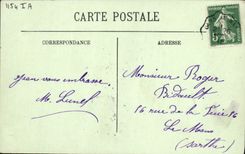 454 I A
CARTE POSTALE
CORRESPONDANCE
ADRESSE
Jean vous embrasse.
M. Lunel
Monsieur Roger
Bidault
16 rue de la 16
Le Mans
(Sarthe)